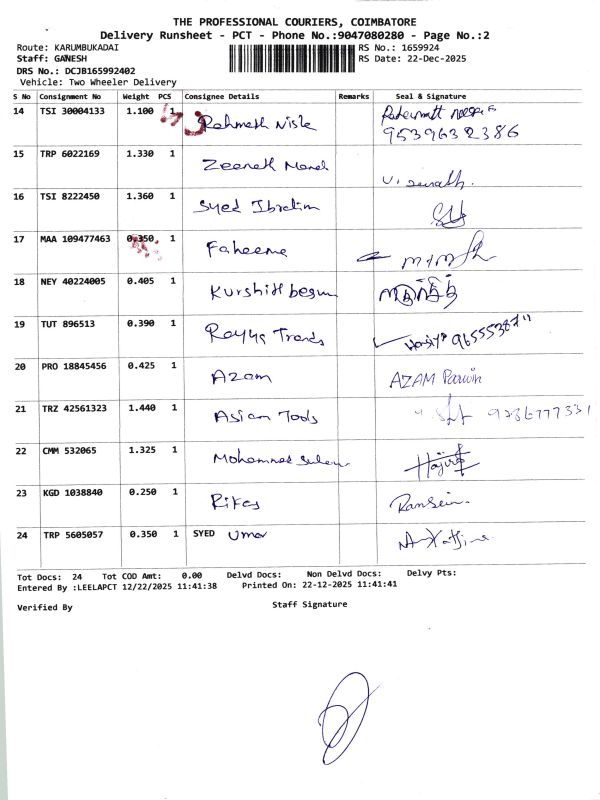 THE PROFESSIONAL COURIERS, COIMBATORE
Delivery Runsheet - PCT - Phone No.:9047080280 - Page No.:2
Route: KARUMBUKADAI RS No.: 1659924
Staff: GANESH RS Date: 22-Dec-2025
DRS No.: DCJB165992402
Vehicle: Two Wheeler Delivery
S No Consignment No Weight PCS Consignee Details Remarks Seal & Signature
14 TSI 30004133 1.100 1 Rahmath Nisha
9539632386
15 TRP 6022169 1.330 1 Zeenath
16 TSI 8222450 1.360 1 Syed Ibrahim
17 MAA 109477463 0.350 1 Faheema
18 NEY 40224005 0.405 1 Kurshith begum
19 TUT 896513 0.390 1 Trends
20 PRO 18845456 0.425 1 Azam AZAM Parwin
21 TRZ 42561323 1.440 1 Asian Tools
22 CMM 532065 1.325 1 Mohammed
23 KGD 1038840 0.250 1
24 TRP 5605057 0.350 1 SYED Umar
Tot Docs: 24 Tot COD Amt: 0.00 Delvd Docs: Non Delvd Docs: Delvy Pts:
Entered By :LEELAPCT 12/22/2025 11:41:38 Printed On: 22-12-2025 11:41:41
Verified By Staff Signature